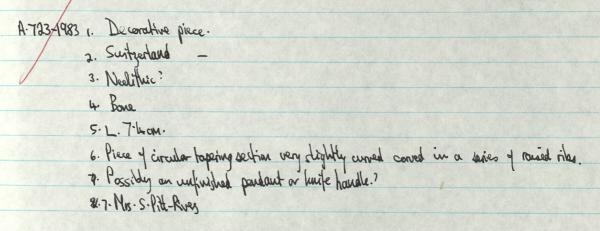 A.723-1983 1. Decorative piece.
2. Switzerland —
3. Neolithic?
4. Bone
5. L. 7.4cm.
6. Piece of circular tapering section very slightly curved carved in a series of raised ribs.
Possibly an unfinished pendant or knife handle.?
7. Mrs. S. Pitt-Rivers